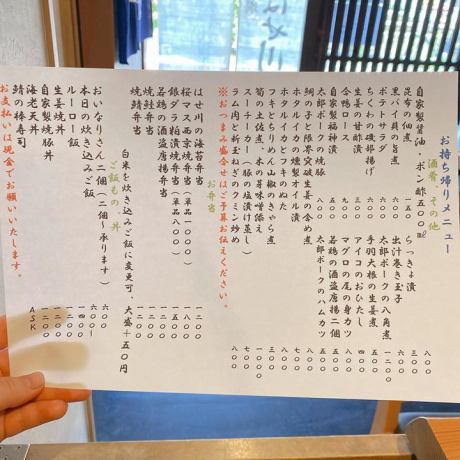 お持ち帰りメニュー
酒肴、その他
自家製醤油・ポン酢500ml 八〇〇
昆布の佃煮 一五〇
らっきょ漬 三〇〇
黒バイ貝の旨煮 六〇〇
出汁巻き玉子 六〇〇
ポテトサラダ 四〇〇
太郎ポークの八角煮 八〇〇
ちくわの磯部揚げ 三〇〇
手羽大根の生姜煮 六〇〇
生姜の甘酢漬
アイコのおひたし 五〇〇
合鴨ロース 九〇〇
マグロの尾の身カツ 八〇〇
自家製福神漬 三〇〇
若鶏の酒盗唐揚二個 五〇〇
太郎ポークの焼豚 八〇〇
太郎ポークのハムカツ
鯛の子と隈笹破竹の含め煮 八〇〇
ホタルイカの燻製オイル漬 八〇〇
ホタルイカとワケギのぬた 八〇〇
フキとちりめん山椒のきゃら煮 三〇〇
筍の土佐煮、木の芽味噌添え 一〇〇〇
スーチーカー(豚の塩漬け蒸し) 七〇〇
ラム肉と新玉ねぎのクミン炒め 八〇〇
※おつまみ盛合せはご予算お伝えください。
お弁当
はせ川の海苔弁当 一二〇〇
桜マス西京焼弁当(単品一〇〇〇) 一八〇〇
銀ダラ粕漬焼弁当(単品八〇〇) 一五〇〇
若鶏の酒盗唐揚弁当 一二〇〇
焼鮭弁当
焼鯖弁当
白米を炊き込みご飯に変更可、大盛+五〇円
ご飯もの、丼
おいなりさん二個(一個〜承ります) 六〇〇
本日の炊き込みご飯 六〇〇
ルーロー飯 一四〇〇
生姜焼丼 一二〇〇
自家製焼豚丼 一二〇〇
海老天丼 一二〇〇
鯖の棒寿司 ASK
お支払いは現金でお願いいたします。